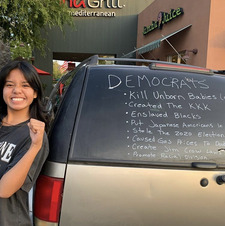 Grill
mediterranean
Juice
DEMOCRATS
• Kill Unborn Babies
• Created The KKK
• Enslaved Blacks
• Put Japanese Americans
• Stole the 2020 Election
• Caused Gas Prices To
• Create Jim Crow
• Promote Racism